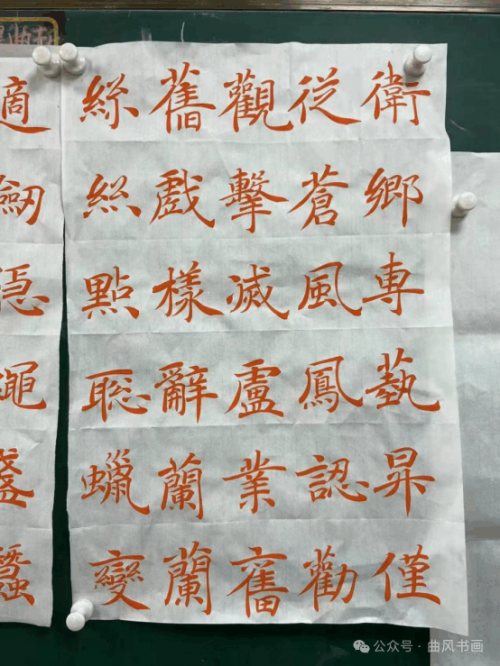 衛鄉專藝昇僅
從蒼風鳳認勸
觀擊滅盧業舊
舊戲樣辭蘭蘭
絲絲點聰蠟變
適
公众号 · 曲风书画